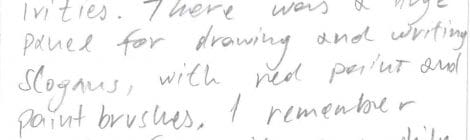 ivities. There was a huge
panel for drawing and writing
slogans, with red paint and
paint brushes. I remember